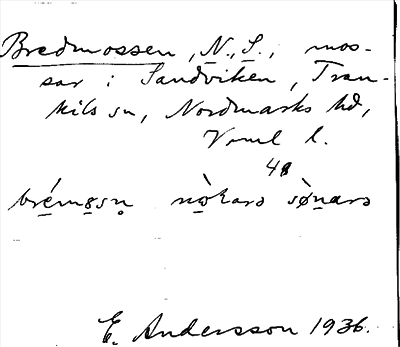 Bredmossen, N., S., mos-
sar i Sandviken, Tran-
kils sn, Nordmarks hd,
Vrml l.
48
bré̱mo̱sn̥ nò̱kara sø̱̀nara
E. Andersson 1936.